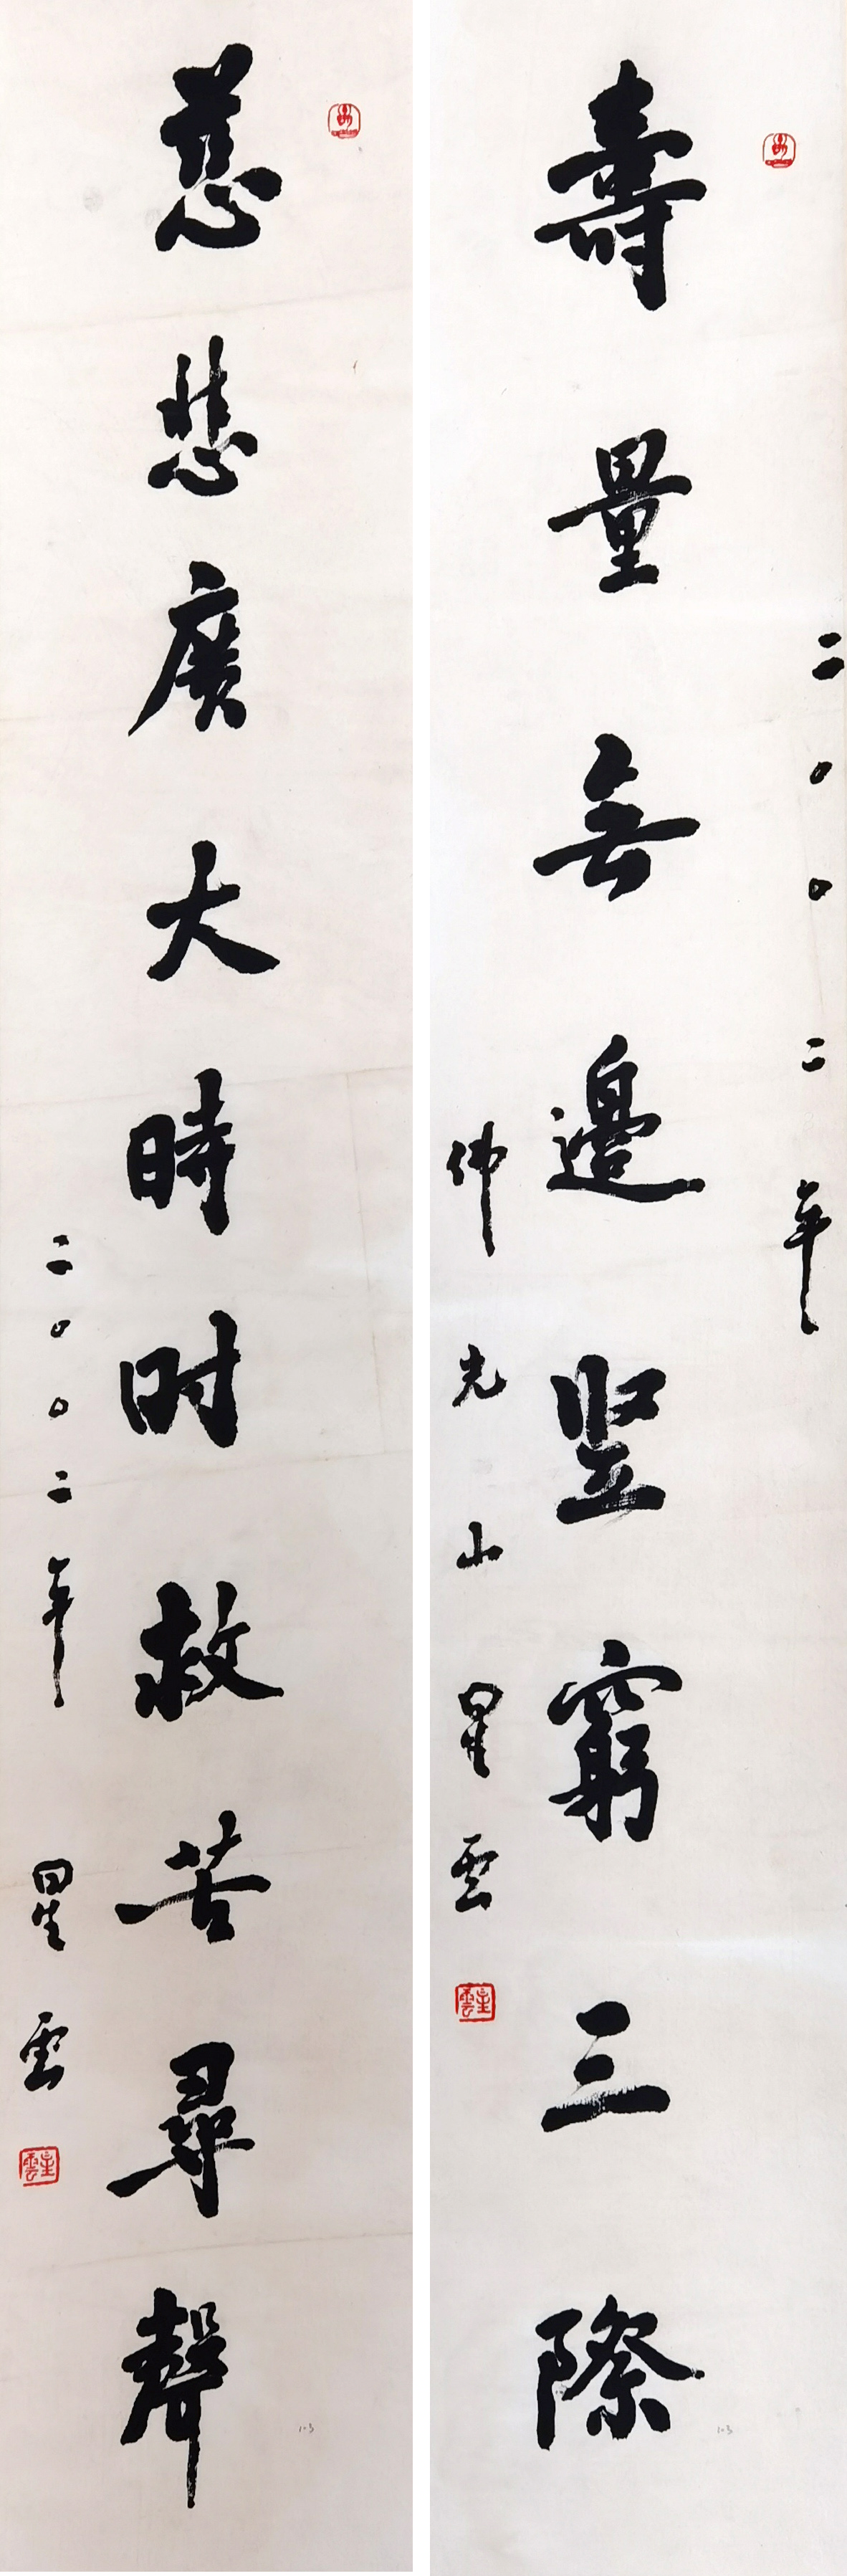 二〇〇二年
壽量無邊竪窮三際
佛光山星雲
星雲
慈悲廣大時时救苦尋聲
二〇〇二年星雲
星雲